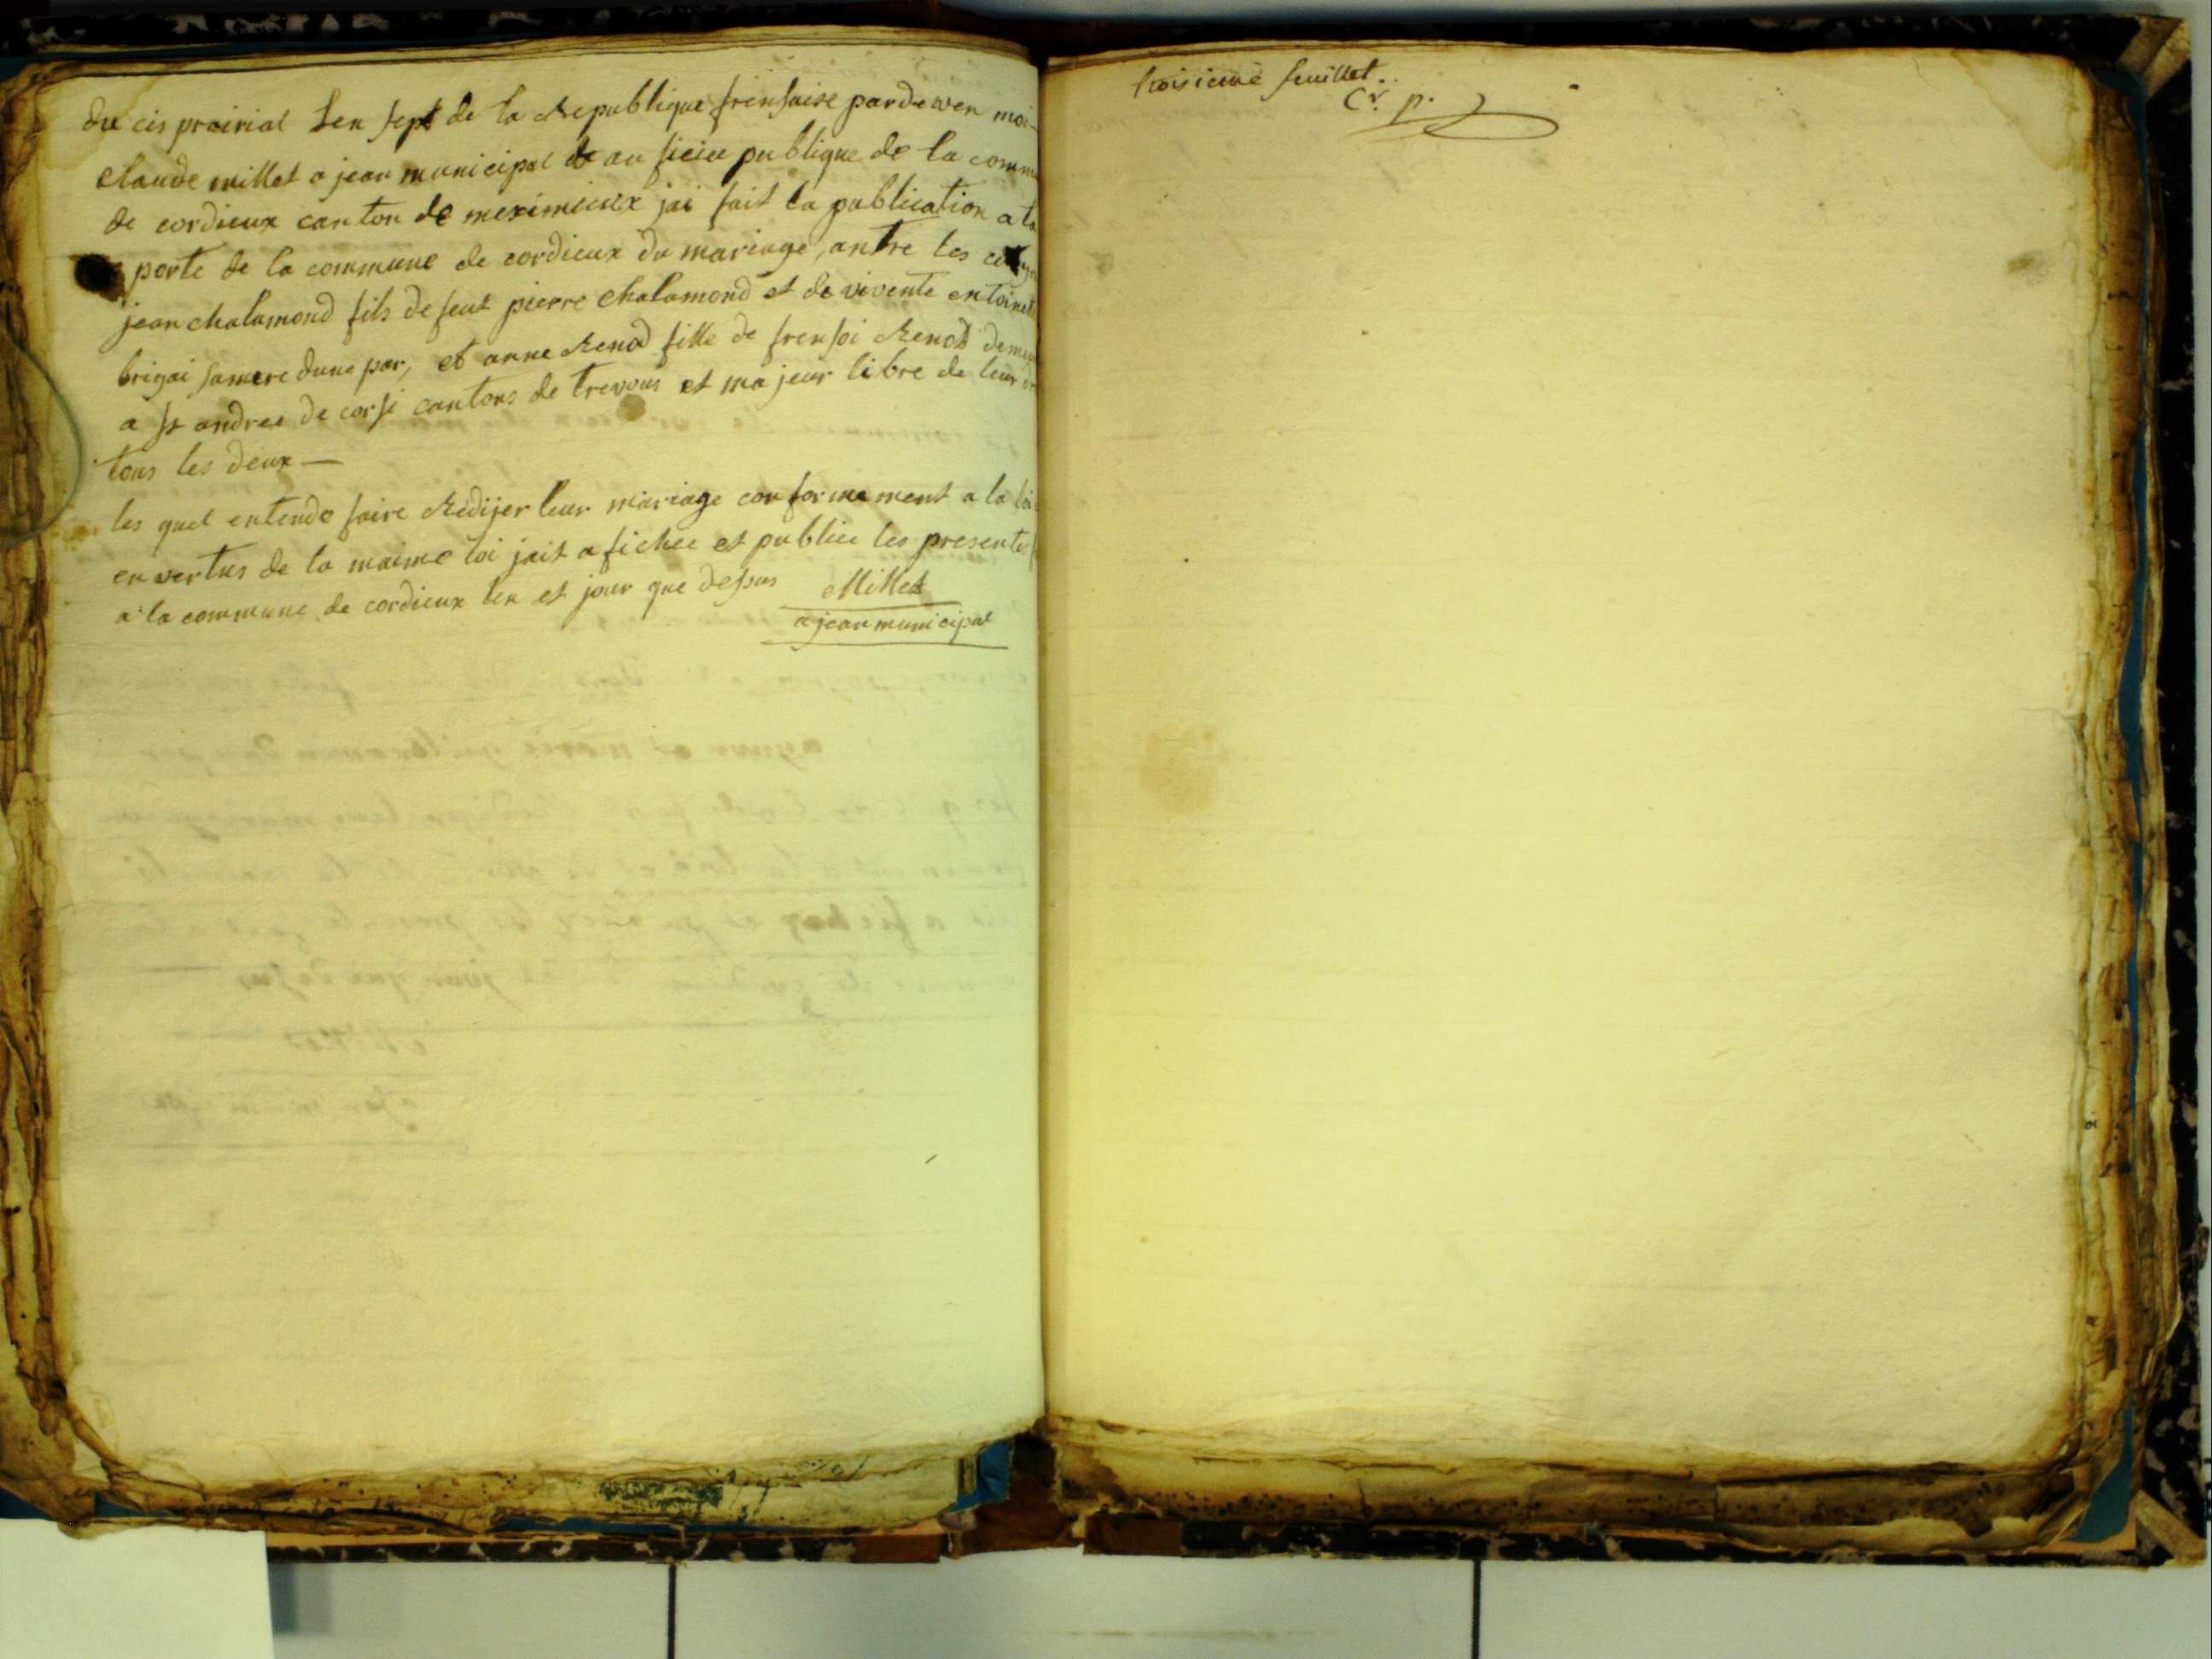 du cis prairial Len sept de la Republique frensaise pardeven moi
Claude millet a jean municipal et au ficiee publique de la comm
de cordieux canton de meximieux jai fait la publication a la
porte de la commune de cordieux du mariage, antre les
jean chalamond fils de feut pierre Chalamond et de vivente entoinet
brigai samere dune par, et anne Renod fille de frensoi Renod deme
a st andree de corsi cantons de trevous et majeur libre de leur
tous les deux —
les quel entende faire Redijer leur mariage conformement a la loi
en vertus de la maime loi jait a fichee et publiee les presentes
a la commune de cordieux len et jour que dessus Millet
a jean municipal
troisieme feuillet.
Cr. p.